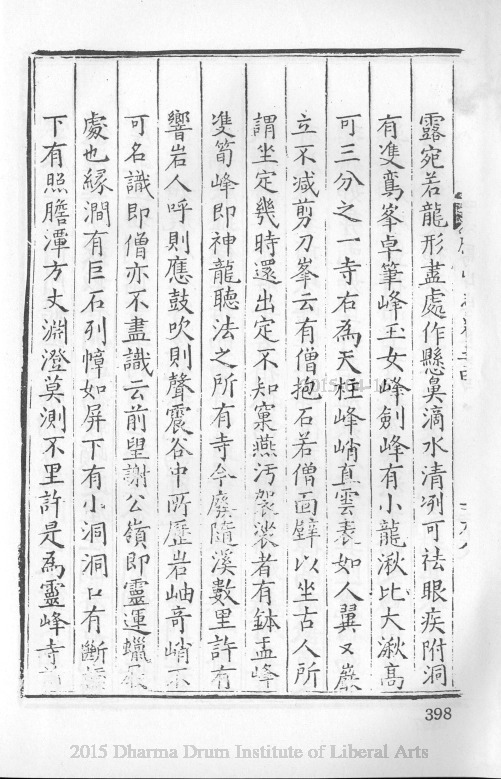 露宛若龍形盡處作懸鼻滴水清冽可祛眼疾附洞
有䨇鸞峯卓筆峰玉女峰劍峰有小龍湫比大湫髙
可三分之一寺右為天柱峰峭直雲表如人翼又巖
立不减剪刀峯云有僧抱石若僧面壁以坐古人所
謂坐定幾時還出定不知窠燕汚袈裟者有鉢盂峰
䨇筍峰即神龍聽法之所有寺今廢隨溪數里許有
響岩人呼則應鼓吹則聲震谷中所歷岩岫奇峭不
可名識即僧亦不盡識云前望謝公嶺即靈運蠟屐
處也緣澗有巨石列幛如屏下有小洞洞口有斷
下有照膽潭方丈淵澄莫測不里許是為靈峰寺
398
2015 Dharma Drum Institute of Liberal Arts